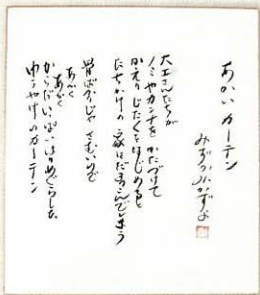 あかいカーテン
みずかみかずよ
大工さんたちが
ノミやカンナを かたづけて
かえりじたくをはじめると
たてかけの 家はだまりこんでしまう
骨ばかりじゃ さむいので
あかく
あかく
からだいっぱいはりめぐらした
ゆうやけのカーテン